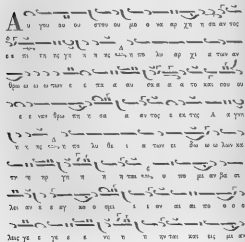 Α υ γου σου ου στου ου μο ο να αρ χη η σα αν τος
ε ε πι τη ης γη η η ης η πο λυ αρ χι α των αν
θρω ω ω των ε ε πα α αυ σα α α α το και σου ου
ε ε ναν θρω πη η σα α αν τος ε εκ της Α α γνη
η η ης η πο λυ θε ι α των ει δω ω ω λων κα
τη η ρ γη η η η ται υ πο μι αν βα σι
λει αν ε εγ κο ο σμι ι ι ον αι αι πο ο ο ο
λεις γε ε γε ε ε νε η η ην ται και εις μι αν